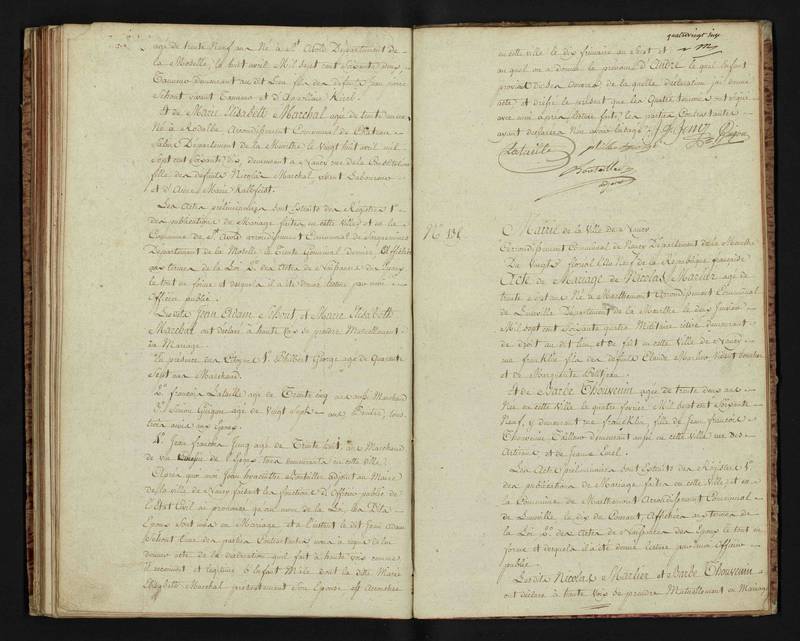 agé de trente neuf ans Né à St. Avold Departement de
la Moselle, le huit avril Mil sept cent soixante deux,
Tanneur demeurant au dit Lieu fils des defunts Jean
Schout vivant Tanneur et d'Apolline
Et de Marie Elisabeth Marchal agée de trente
Né à Rodalbe Arrondissement Communal de Chateau
Salins Departement de la Meurthe le Vingt huit avril mil
sept cent soixante dix, demeurant a Nancy rue de la
fille des defunts Nicolas Marchal, vivant Laboureur
et d'Anne Marie
Les Actes préliminaires sont Extraits des Registres 1°
des publications de Mariage faites en cette Ville et en la
Commune de St. Avold arrondissement Communal de Sarguemines
Departement de la Moselle le Trente Germinal dernier, et affichées
aux termes de la Loi 2.° des Actes de Naissance des Epoux
le tout en forme et desquels il a été donné lecture par moi
Officier public.
Lesdits Jean Adam Schout et Marie Elisabeth
Marchal ont déclaré à haute voix se prendre Mutuellement
en Mariage
En présence des Citoyens 1.° Philbert George agé de Quarante
Sept ans Marchand.
2.° françois Lataille agé de Trente cinq ans aussi Marchand
3.° Guigon agé de Vingt Sept ans tous
trois amis aux Epoux.
4.° Jean françois Jeny agé de Trente huit ans Marchand
de vin de l'Epoux, tous demeurants en cette Ville,
Après quoi moi Jean hyacinthe Bouteiller adjoint au Maire
de la ville de Nancy faisant les fonctions d'Officier public de
l'Etat Civil ai prononcé qu'au nom de la Loi, les dits
Epoux sont unis en Mariage et à l'instant le dit Jean Adam
Schout l'une des parties Contractantes nous a requis de lui
donner acte de la déclaration qu'il fait à haute voix comme
il reconnoit et légitime l'enfant Mâle dont la dite Marie
Elisabeth Marchal présentement son Epouse est accouchée
quatrevingt
en cette ville le dix frimaire an Sept et
auquel on a donné le prénom d'André lequel enfant
provient de ses œuvres de laquelle déclaration j'ai donné
acte et dressé le présent que les Quatre témoins ont signé
avec moi après lecture faite, les parties Contractantes
ayant déclaré Jf Jeny
Lataille Guigon
Bouteiller
adjoint
N.°
Mairie de la Ville de Nancy
Arrondissement Communal de Nancy Département de la Meurthe
Du Vingt floréal l'An Neuf de la République française
Acte de Mariage de Nicolas Marlier agé de
trente sept ans Né à Marthemont Arrondissement Communal
de Lunéville Departement de la Meurthe le dix
Mil sept cent soixante quatre Militaire demeurant
de droit au dit Lieu, et de fait en cette Ville de Nancy
rue franklin fils des defunts Claude Marlier, vivant
et de Marguerite
Et de Barbe Thouvenin agée de trente deux ans
Née en cette ville le quatre fevrier Mil sept cent Soixante
Neuf, y demeurant rue francklin, fille de Jean françois
Thouvenin Tailleur demeurant aussi en cette Ville rue des
Artisans et de Jeanne
Les Actes préliminaires sont Extraits des Registres 1.°
des publications de Mariage faites en cette Ville et en
la Commune de Marthemont Arrondissement Communal
de Lunéville le dix du Courant, Affichées aux termes de
la Loi 2.° des Actes de Naissance des Epoux le tout en
forme et desquels il a été donné lecture par moi Officier
public
Lesdits Nicolas Marlier et Barbe Thouvenin
ont déclaré à haute Voix se prendre Mutuellement en Mariage